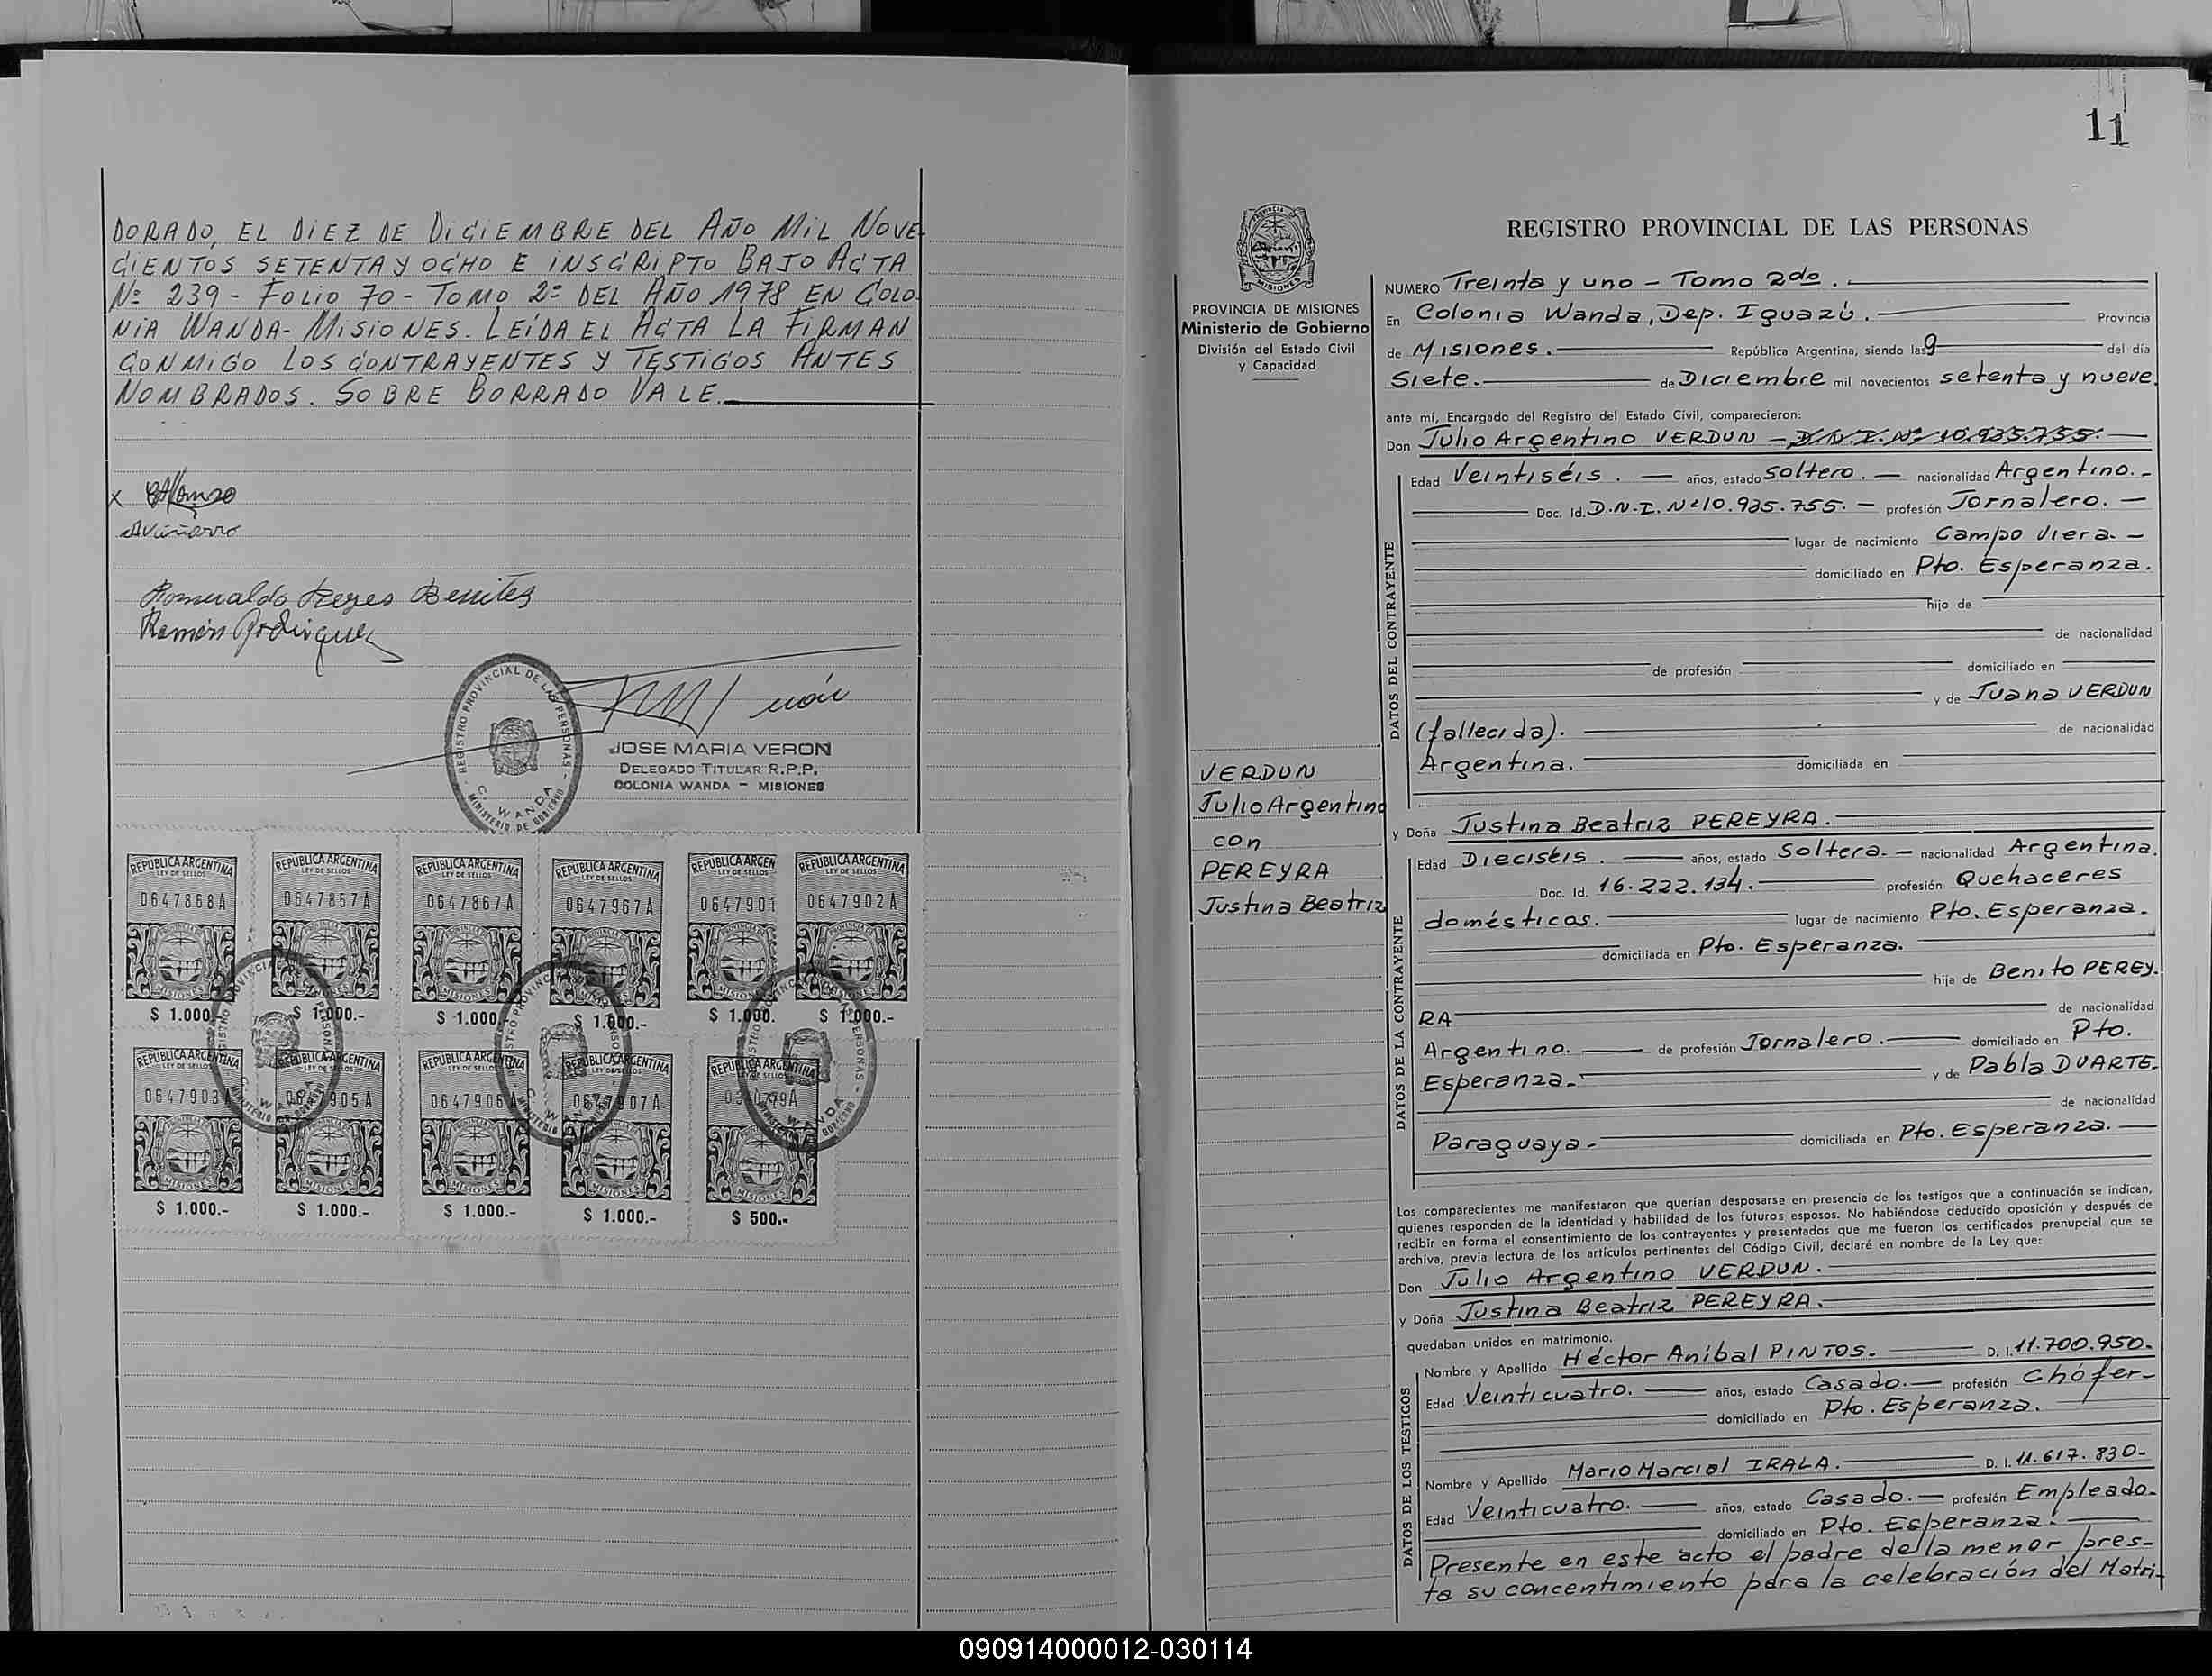 DORADO, EL DIEZ DE DICIEMBRE DEL AÑO MIL NOVE-
CIENTOS SETENTA Y OCHO E INSCRIPTO BAJO ACTA
Nº 239 - FOLIO 70 - TOMO 2º DEL AÑO 1978 EN COLO-
NIA WANDA - MISIONES. LEÍDA EL ACTA LA FIRMAN
CONMIGO LOS CONTRAYENTES Y TESTIGOS ANTES
NOMBRADOS. SOBRE BORRADO VALE.
x
Romualdo Reyes Benitez
Ramón Rodriguez
REGISTRO PROVINCIAL DE LAS PERSONAS
C. WANDA
MINISTERIO DE GOBIERNO
JOSE MARIA VERON
DELEGADO TITULAR R.P.P.
COLONIA WANDA - MISIONES
REPUBLICA ARGENTINA REPUBLICA ARGENTINA REPUBLICA ARGENTINA REPUBLICA ARGENTINA REPUBLICA ARGEN REPUBLICA ARGENTINA
LEY DE SELLOS LEY DE SELLOS LEY DE SELLOS LEY DE SELLOS LEY DE SELLOS LEY DE SELLOS
0647868A 0647857A 0647867A 0647967A 0647901 0647902A
MISIONES MISIONES MISIONES MISIONES MISIONES MISIONES
$ 1.000 $ 1.000.- $ 1.000.- $ 1.000.- $ 1.000. $ 1.000.-
REPUBLICA ARGENTINA REPUBLICA ARGENTINA REPUBLICA ARGENTINA REPUBLICA ARGENTINA REPUBLICA ARGENTINA
LEY DE SELLOS LEY DE SELLOS LEY DE SELLOS LEY DE SELLOS LEY DE SELLOS
0647903A 0647905A 0647906A 0647907A
MISIONES MISIONES MISIONES MISIONES MISIONES
$ 1.000.- $ 1.000.- $ 1.000.- $ 1.000.- $ 500.-
11
PROVINCIA DE MISIONES
Ministerio de Gobierno
División del Estado Civil
y Capacidad
VERDUN
Julio Argentino
con
PEREYRA
Justina Beatriz
REGISTRO PROVINCIAL DE LAS PERSONAS
NUMERO Treinta y uno - Tomo 2do.
En Colonia Wanda, Dep. Iguazú. Provincia
de Misiones. República Argentina, siendo las 9 del día
Siete. de Diciembre mil novecientos setenta y nueve.
ante mí, Encargado del Registro del Estado Civil, comparecieron:
Don Julio Argentino VERDUN - D.N.I. Nº 10.935.755.
DATOS DEL CONTRAYENTE
Edad Veintiséis. años, estado Soltero. nacionalidad Argentino.-
Doc. Id. D.N.I. Nº 10.935.755. profesión Jornalero.
lugar de nacimiento Campo Viera.-
domiciliado en Pto. Esperanza.
hijo de
de nacionalidad
de profesión domiciliado en
y de Juana VERDUN
(fallecida). de nacionalidad
Argentina. domiciliada en
y Doña Justina Beatriz PEREYRA.
DATOS DE LA CONTRAYENTE
Edad Dieciséis. años, estado Soltera.- nacionalidad Argentina.
Doc. Id. 16.222.134. profesión Quehaceres
domésticos. lugar de nacimiento Pto. Esperanza.
domiciliada en Pto. Esperanza.
hija de Benito PEREY-
RA de nacionalidad
Argentino. de profesión Jornalero. domiciliado en Pto.
Esperanza.- y de Pabla DUARTE.
de nacionalidad
Paraguaya.- domiciliada en Pto. Esperanza.
Los comparecientes me manifestaron que querían desposarse en presencia de los testigos que a continuación se indican,
quienes responden de la identidad y habilidad de los futuros esposos. No habiéndose deducido oposición y después de
recibir en forma el consentimiento de los contrayentes y presentados que me fueron los certificados prenupcial que se
archiva, previa lectura de los artículos pertinentes del Código Civil, declaré en nombre de la Ley que:
Don Julio Argentino VERDUN.
y Doña Justina Beatriz PEREYRA.
quedaban unidos en matrimonio.
DATOS DE LOS TESTIGOS
Nombre y Apellido Héctor Aníbal PINTOS. D. I. 11.700.950.
Edad Veinticuatro. años, estado Casado. profesión Chófer-
domiciliado en Pto. Esperanza.
Nombre y Apellido Mario Marcial IRALA. D. I. 11.617.830-
Edad Veinticuatro. años, estado Casado. profesión Empleado-
domiciliado en Pto. Esperanza.
Presente en este acto el padre de la menor pres-
ta su concentimiento para la celebración del Matri-
090914000012-030114